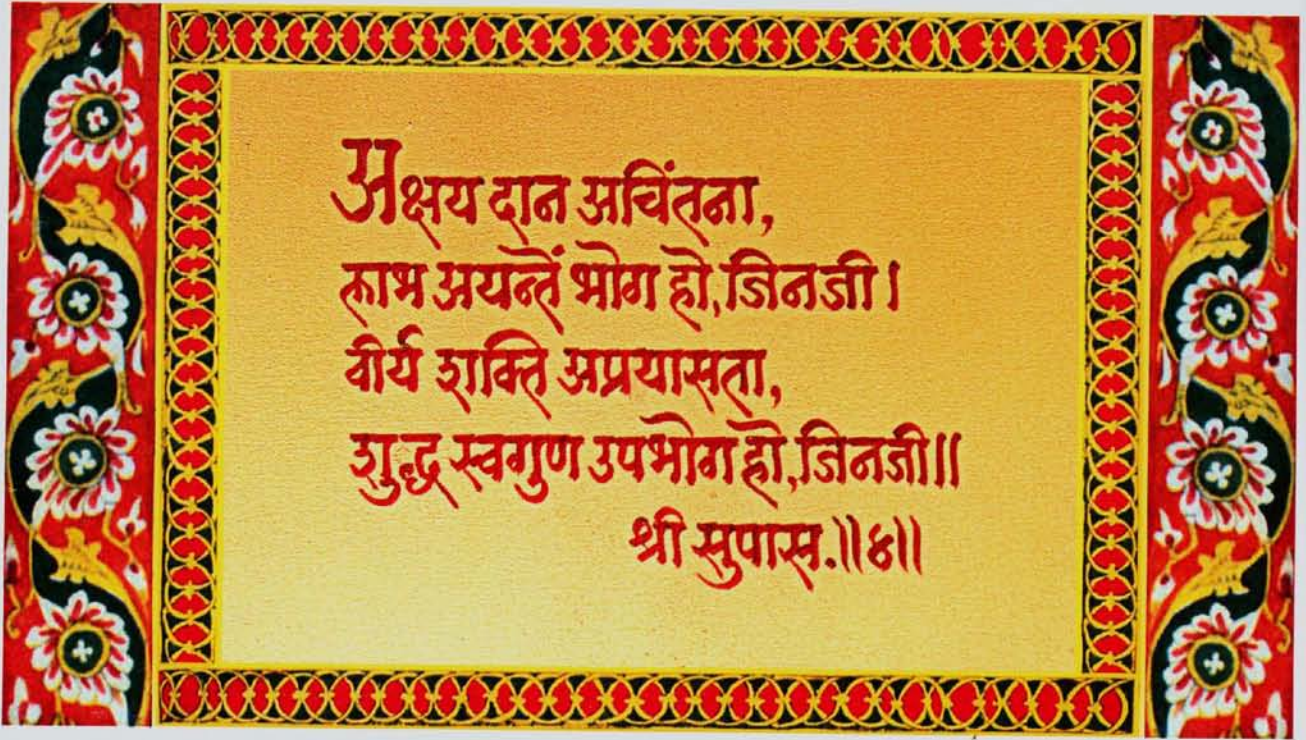 अक्षय दान अचिंतना,
लाभ अयन्तें भोग हो, जिनजी।
वीर्य शक्ति अप्रयासता,
शुद्ध स्वगुण उपभोग हो, जिनजी॥
श्री सुपास.॥४॥